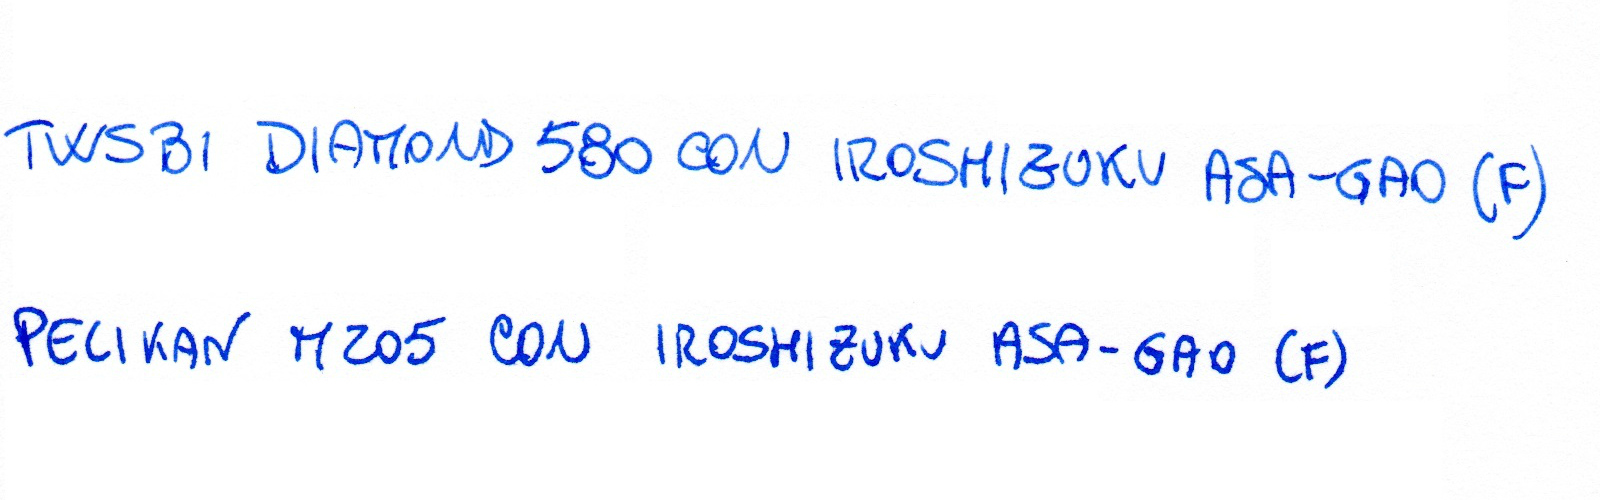 TWSBI DIAMOND 580 CON IROSHIZUKU ASA-GAO (F)
PELIKAN M205 CON IROSHIZUKU ASA-GAO (F)